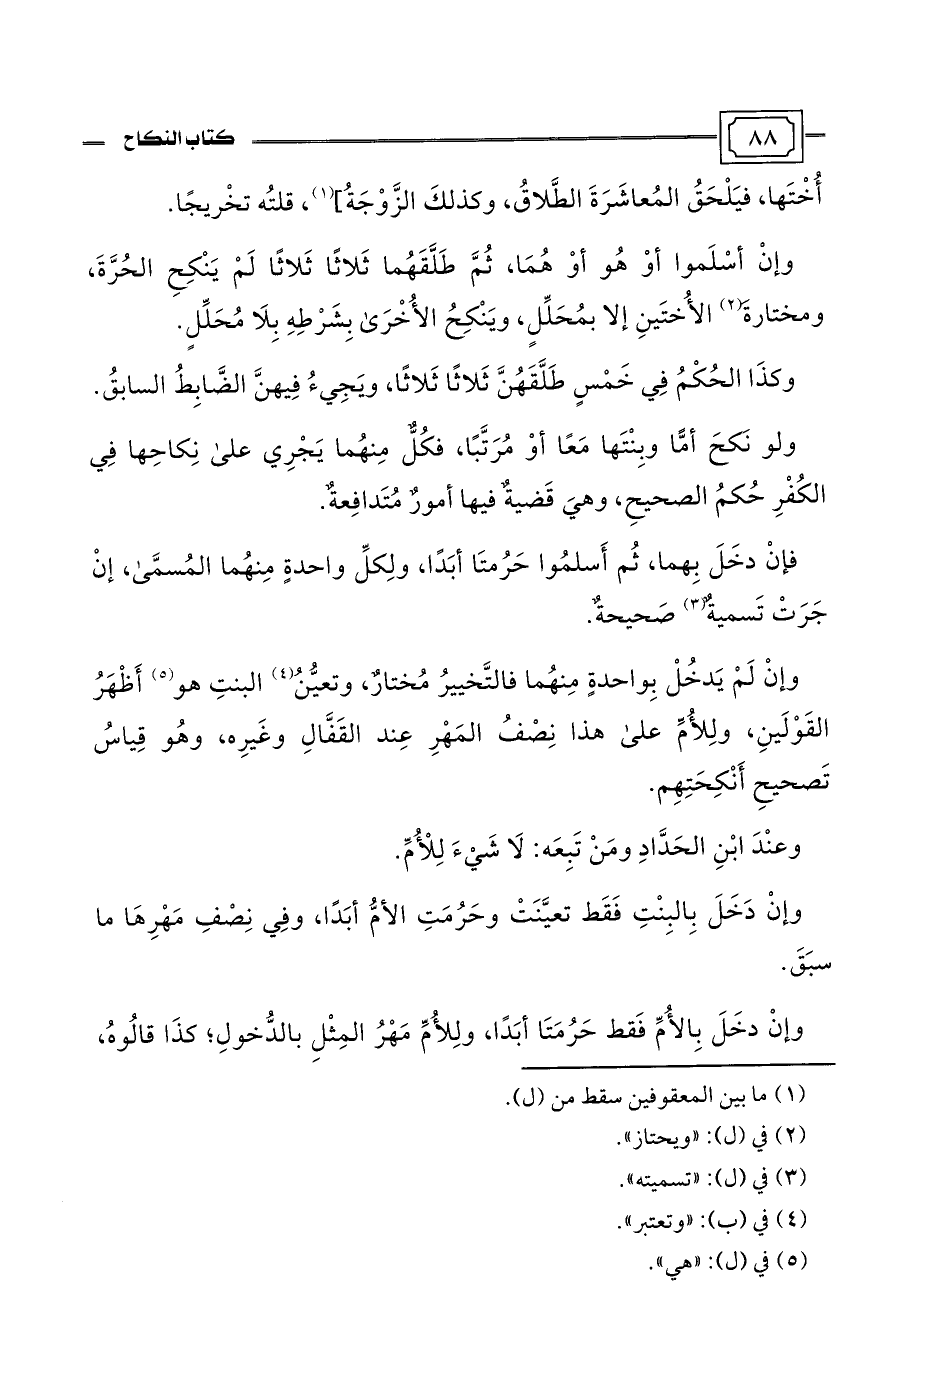 ٨٨ كتاب النكاح
أُخْتَها، فيَلْحَقُ المُعاشَرَةَ الطَّلاقُ، وكذلكَ الزَّوْجَةُ](١)، قلتُه تخْريجًا.
وإنْ أسْلَموا أوْ هُو أوْ هُمَا، ثُمَّ طَلَّقَهُما ثَلاثًا ثَلاثًا لَمْ يَنْكِحِ الحُرَّةَ،
ومختارةَ(٢) الأُختَينِ إلا بمُحَلِّلٍ، ويَنْكِحُ الأُخْرَىٰ بِشَرْطِهِ بِلَا مُحَلِّلٍ.
وكذَا الحُكْمُ فِي خَمْسٍ طَلَّقَهُنَّ ثَلاثًا ثَلاثًا، ويَجِيءُ فِيهنَّ الضَّابِطُ السابقُ.
ولو نَكَحَ أمًّا وبِنْتَها مَعًا أوْ مُرَتَّبًا، فكُلٌّ مِنهُما يَجْرِي علىٰ نِكاحِها فِي
الكُفْرِ حُكمُ الصحيحِ، وهيَ قَضيةٌ فيها أمورٌ مُتَدافِعةٌ.
فإنْ دخَلَ بِهما، ثُم أَسلمُوا حَرُمتَا أبَدًا، ولِكلِّ واحدةٍ مِنهُما المُسمَّىٰ، إنْ
جَرَتْ تَسميةٌ(٣) صَحيحةٌ.
وإنْ لَمْ يَدخُلْ بِواحدةٍ مِنهُما فالتَّخييرُ مُختارٌ، وتعيُّنُ(٤) البنتِ هو(٥) أَظْهَرُ
القَوْلَينِ، ولِلأُمِّ علىٰ هذا نِصْفُ المَهْرِ عِند القَفَّالِ وغَيرِه، وهُو قِياسُ
تَصحيحِ أَنْكِحَتِهِم.
وعنْدَ ابْنِ الحَدَّادِ ومَنْ تَبِعَه: لَا شَيْءَ لِلْأُمِّ.
وإنْ دَخَلَ بِالبِنْتِ فَقَط تعيَّنَتْ وحَرُمَتِ الأمُّ أبَدًا، وفِي نِصْفِ مَهْرِهَا ما
سبَقَ.
وإنْ دخَلَ بِالأُمِّ فَقط حَرُمَتَا أبَدًا، ولِلأُمِّ مَهْرُ المِثْلِ بالدُّخولِ؛ كذَا قالُوهُ،
(١) ما بين المعقوفين سقط من (ل).
(٢) في (ل): «ويحتاز».
(٣) في (ل): «تسميته».
(٤) في (ب): «وتعتبر».
(٥) في (ل): «هي».